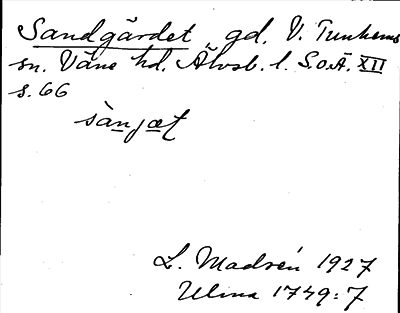 Sandgärdet gd. V. Tunhems
sn. Väne hd. Älvsb. l. S.o.Ä. XII
s. 66
sànjæt
L. Madsén 1927
Ulma 1749:7